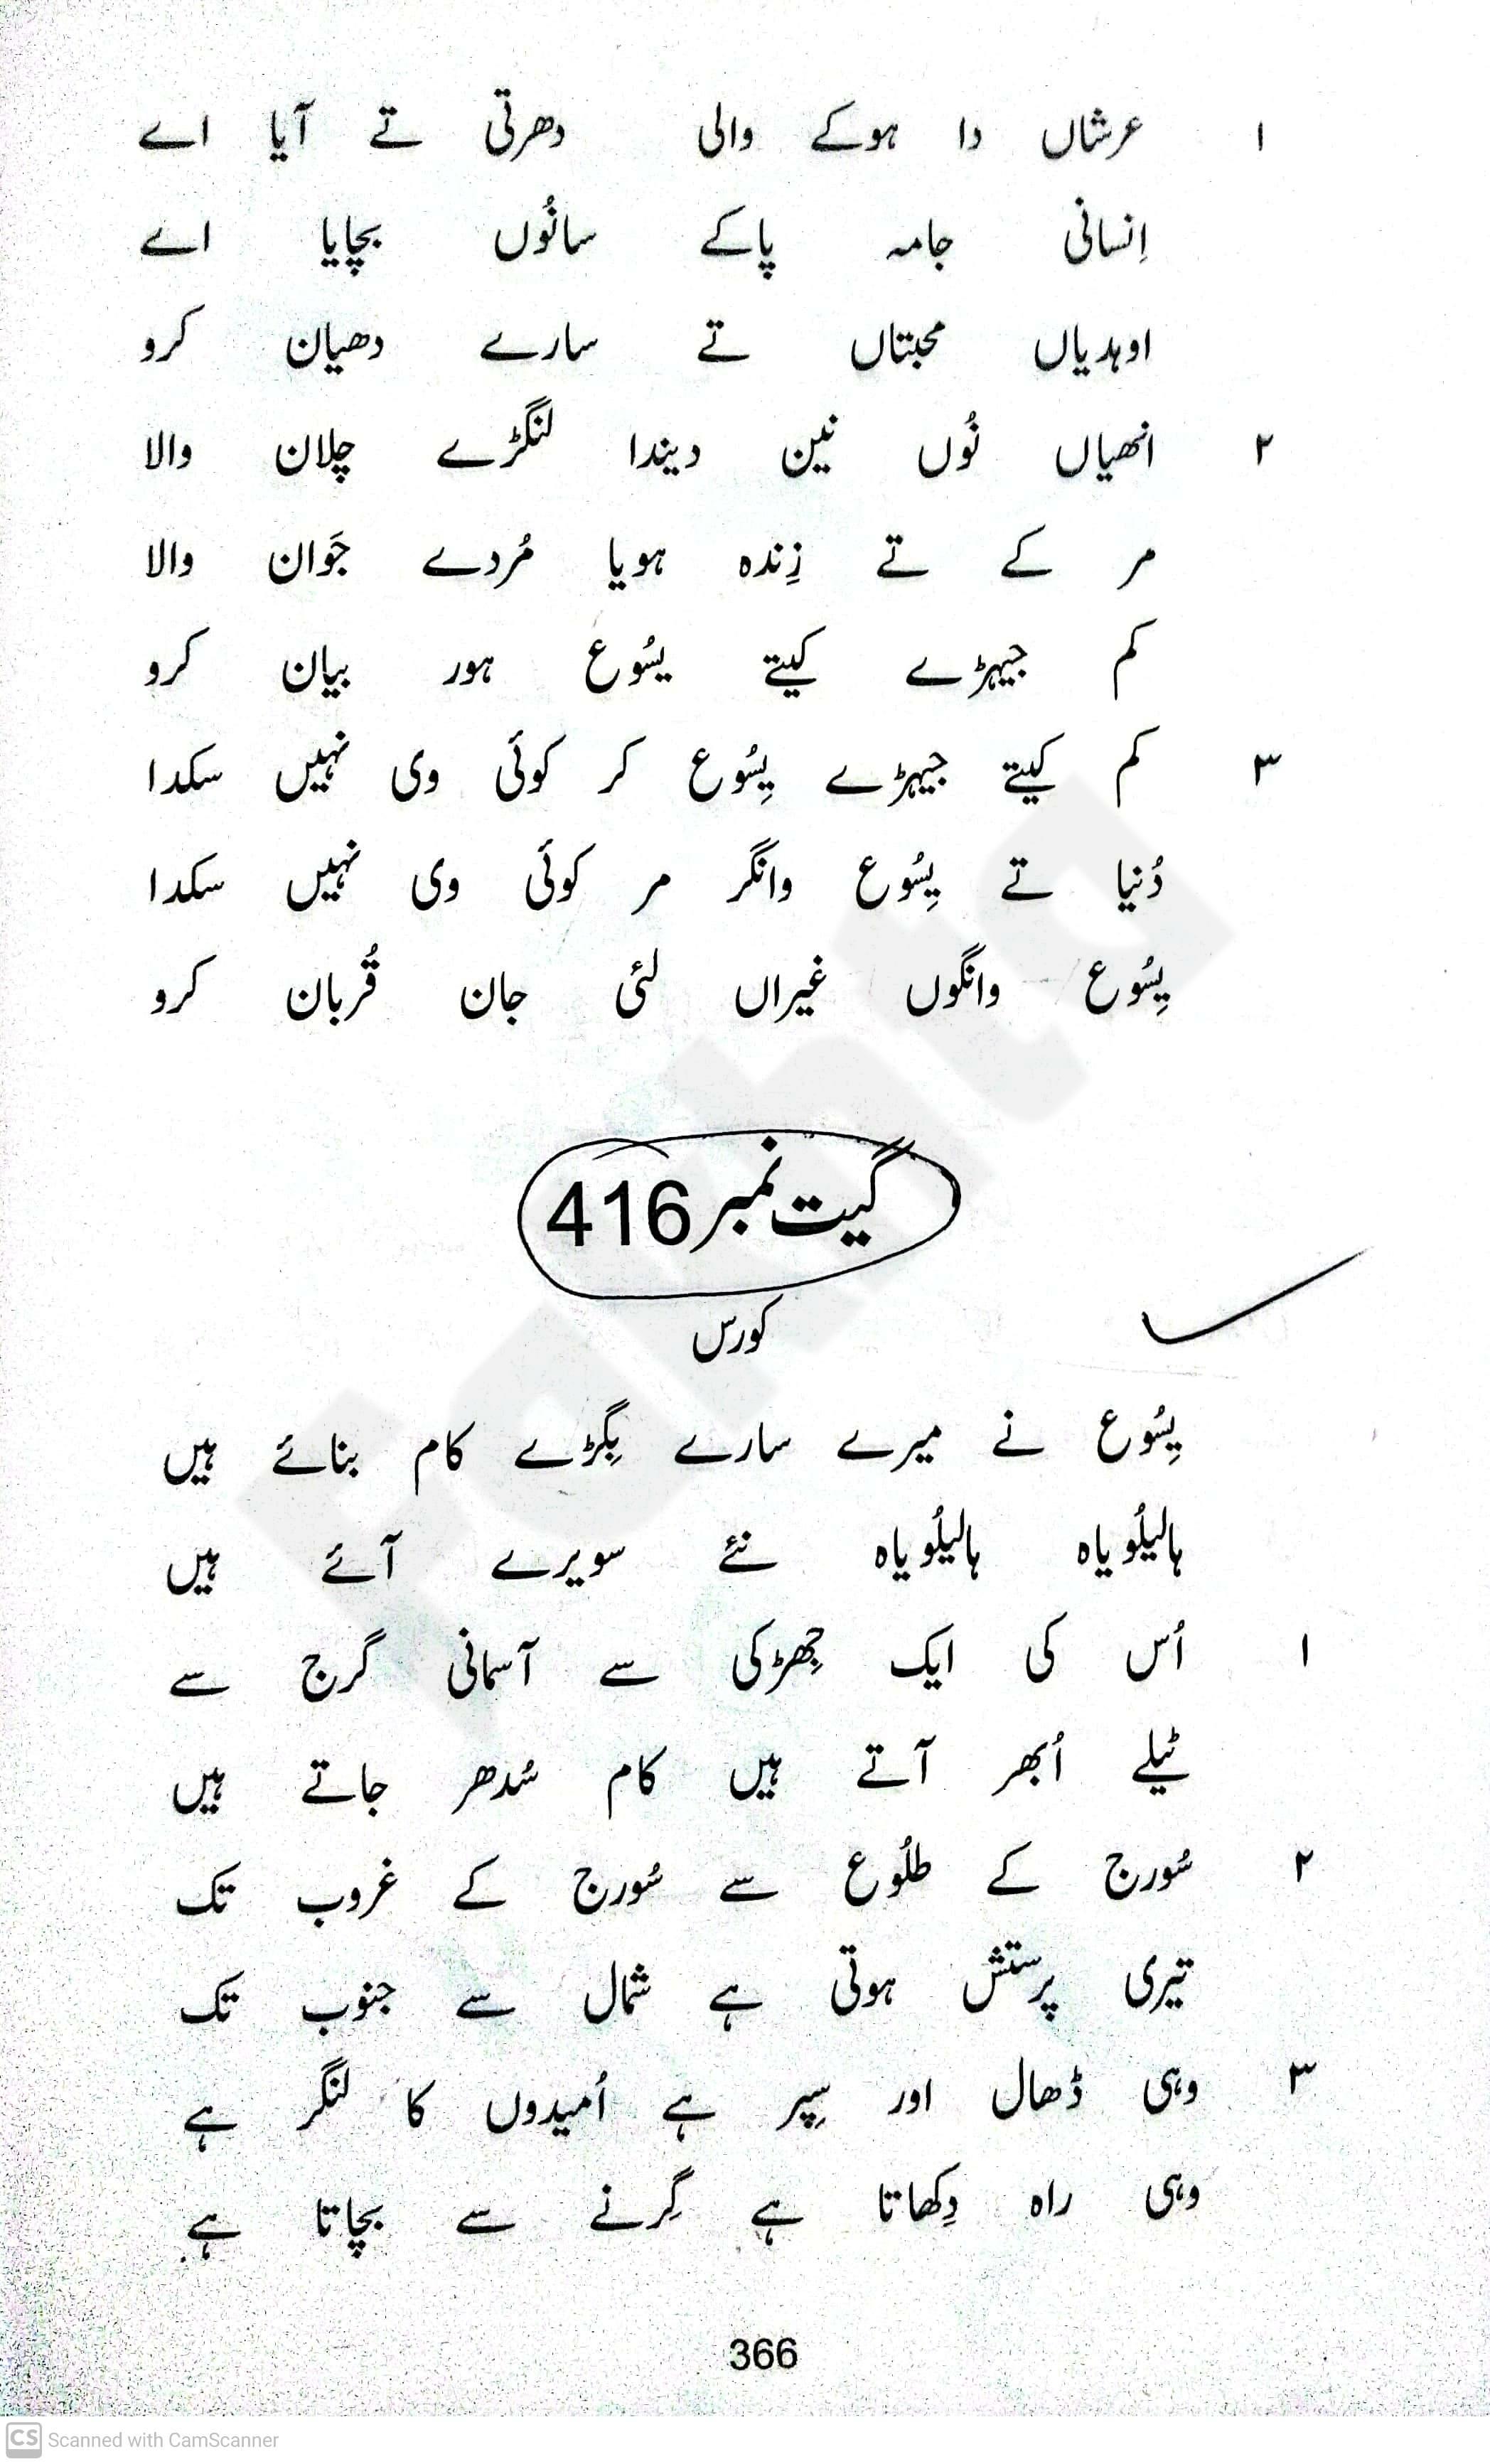 ۱ عرشاں دا ہوکے والی دھرتی تے آیا اے
اِنسانی جامہ پاکے سانُوں بچایا اے
اوہدیاں محبتاں تے سارے دھیان کرو
۲ انھیاں نُوں نین دیندا لنگڑے چلان والا
مر کے تے زِندہ ہویا مُردے جَوان والا
کم جیہڑے کیتے یسُوع ہور بیان کرو
۳ کم کیتے جیہڑے یِسُوع کر کوئی وی نہیں سکدا
دُنیا تے یِسُوع وانگر مر کوئی وی نہیں سکدا
یِسُوع وانگوں غیراں لئی جان قُربان کرو
گیت نمبر 416
کورس
یِسُوع نے میرے سارے بِگڑے کام بنائے ہیں
ہالیلُویاہ ہالیلُویاہ نئے سویرے آئے ہیں
۱ اُس کی ایک جِھڑکی سے آسمانی گرج سے
ٹیلے اُبھر آتے ہیں کام سُدھر جاتے ہیں
۲ سُورج کے طلُوع سے سُورج کے غروب تک
تیری پرستش ہوتی ہے شمال سے جنوب تک
۳ وہی ڈھال اور سِپر ہے اُمیدوں کا لنگر ہے
وہی راہ دِکھاتا ہے گِرنے سے بچاتا ہے
366
CS Scanned with CamScanner